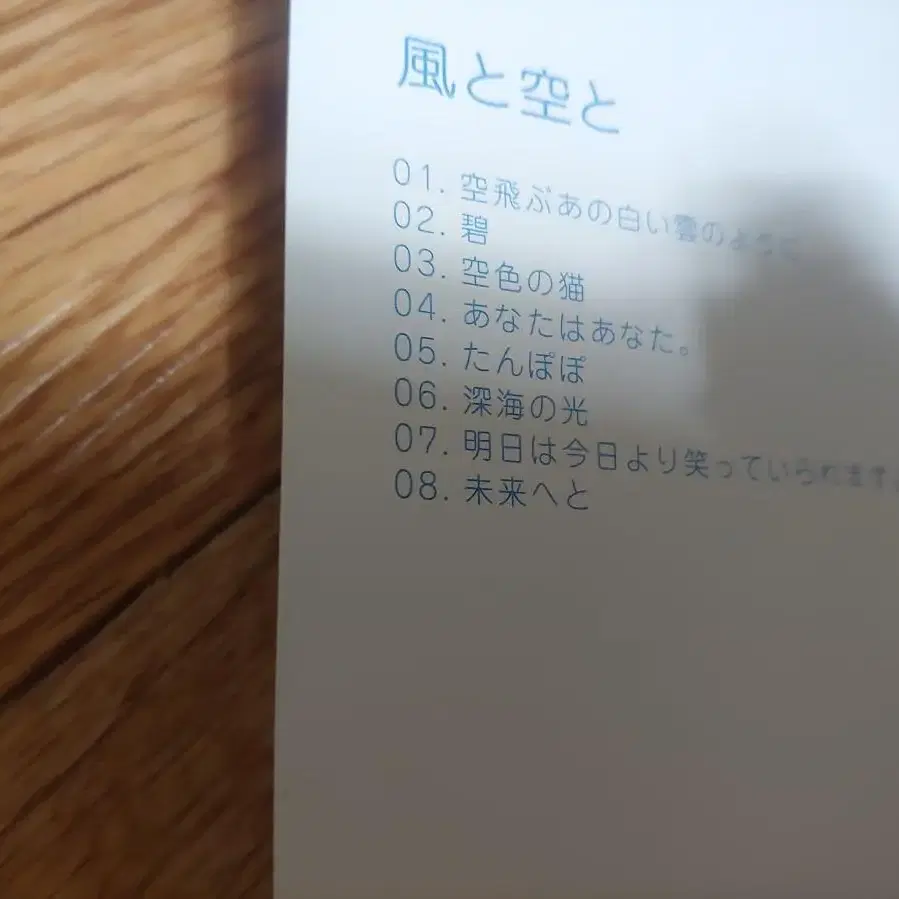 風と空と
01. 空飛ぶあの白い雲のように
02. 碧
03. 空色の猫
04. あなたはあなた。
05. たんぽぽ
06. 深海の光
07. 明日は今日より笑っていられます
08. 未来へと